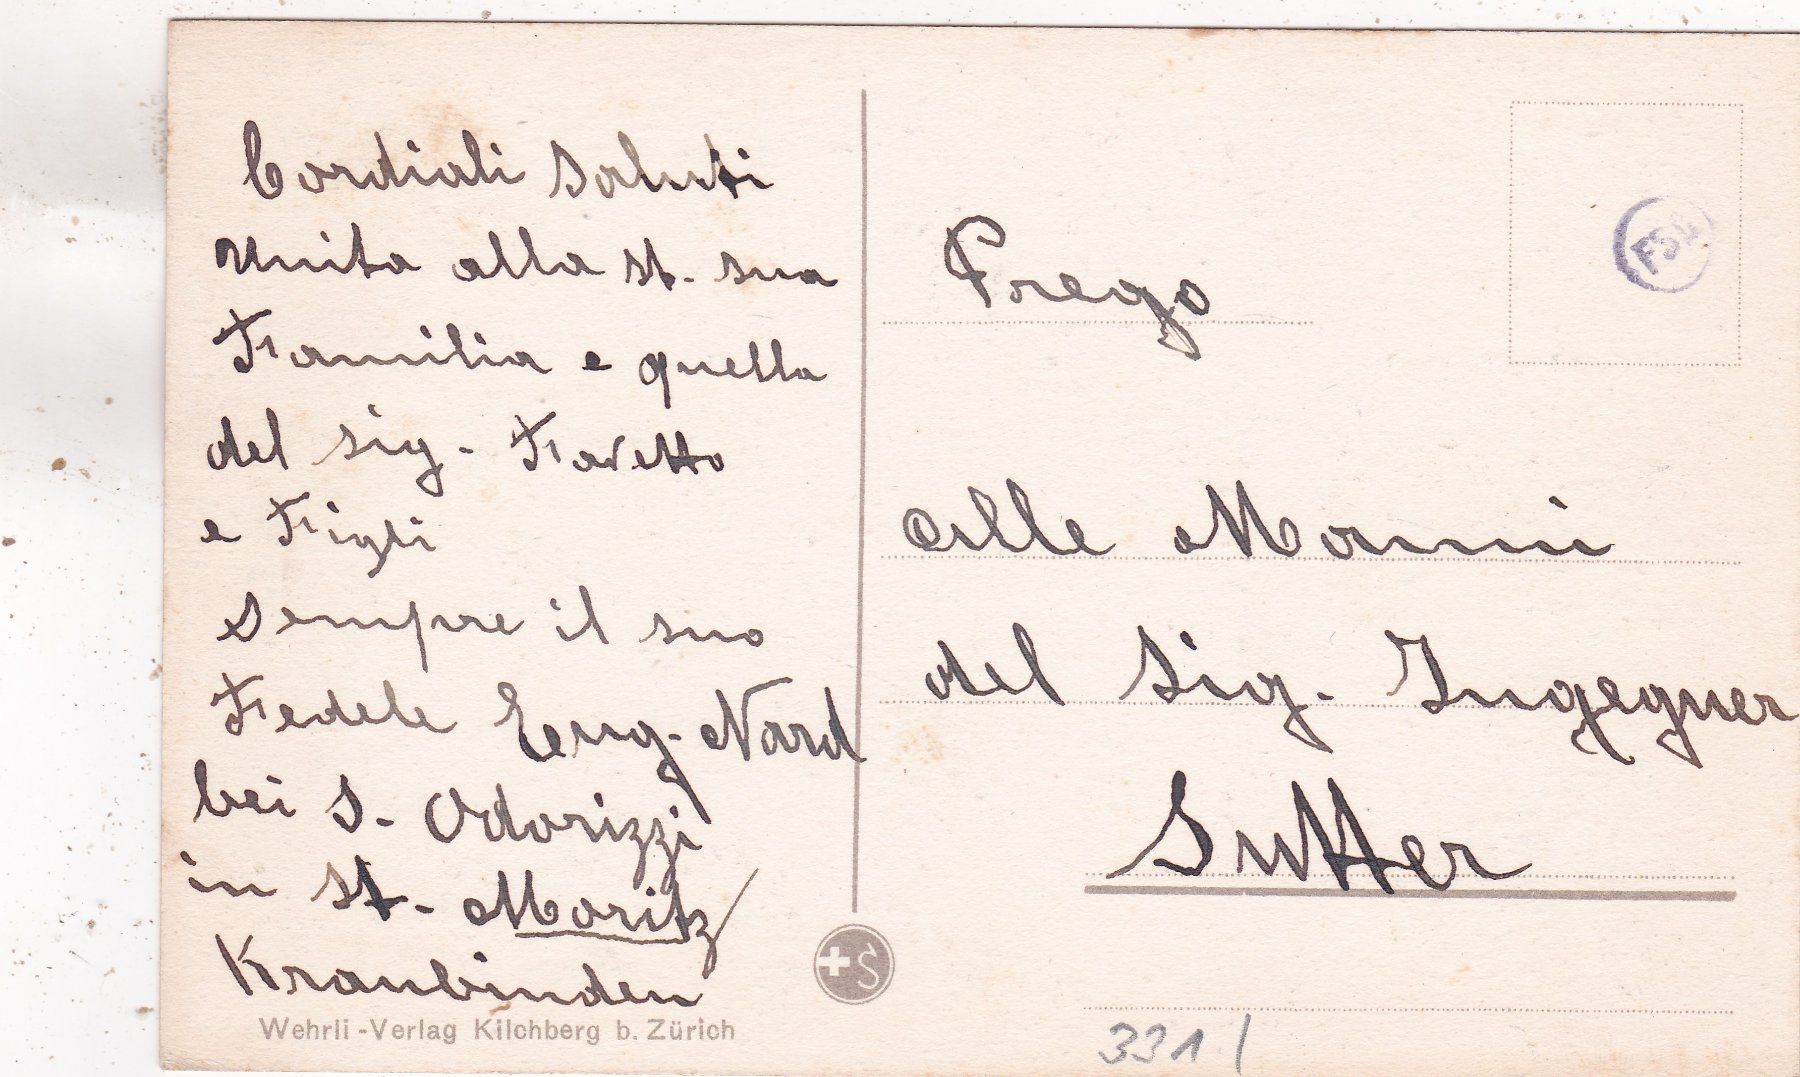 Cordiali Saluti
unita alla st. sua
Familia e quella
del sig. Favetto
e Figli
Sempre il suo
Fedele Eeug. Nard
bei S. Odorizzi
in St. Moritz
Kraubinden
Wehrli-Verlag Kilchberg b. Zürich
Prego
alle Manni
del Sig. Ingegner
Sutter
331